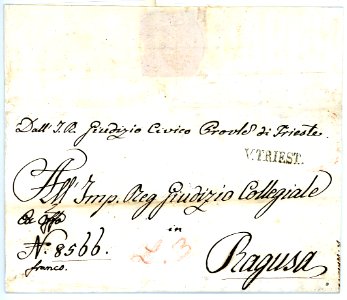 Dall' I. R. Giudizio Civico Provle di Trieste
V. TRIEST.
All' Imp. Reg Giudizio Collegiale
in
No. 8566.
franco.
Ragusa